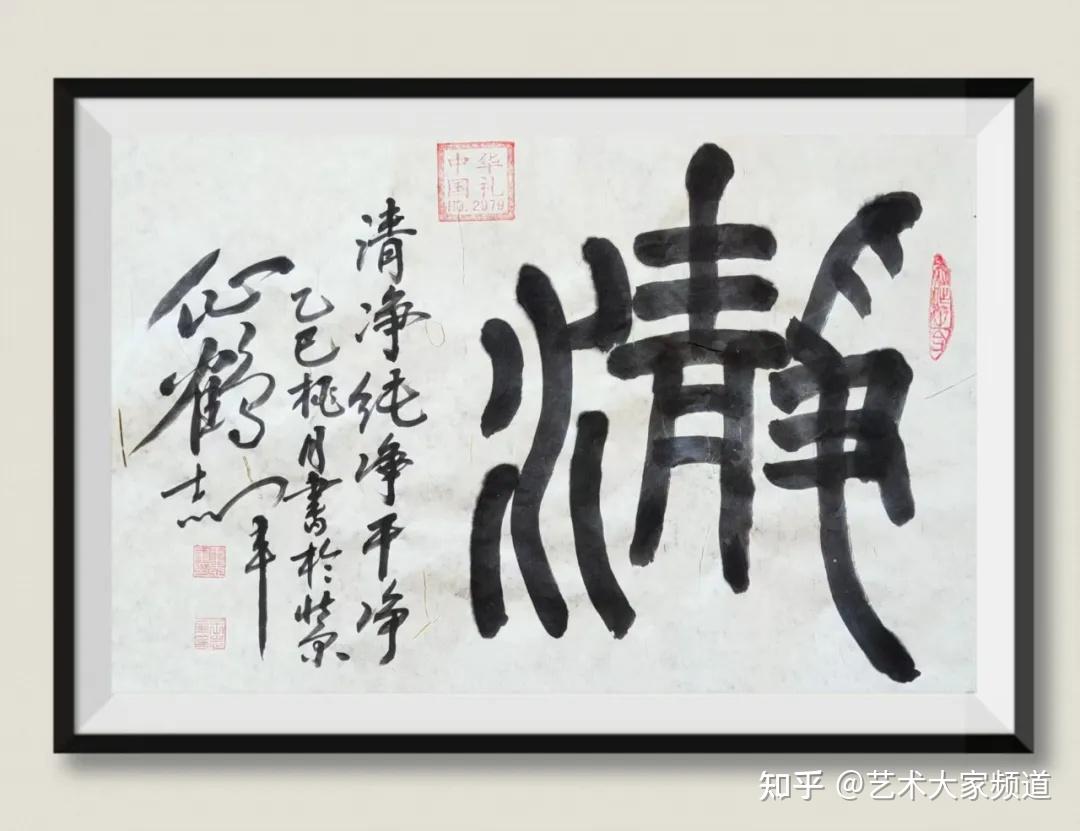 瀞
中华
国礼
NO.2979
清净纯净干净
乙巳桃月書於北京
仙鶴
志
知乎 @艺术大家频道